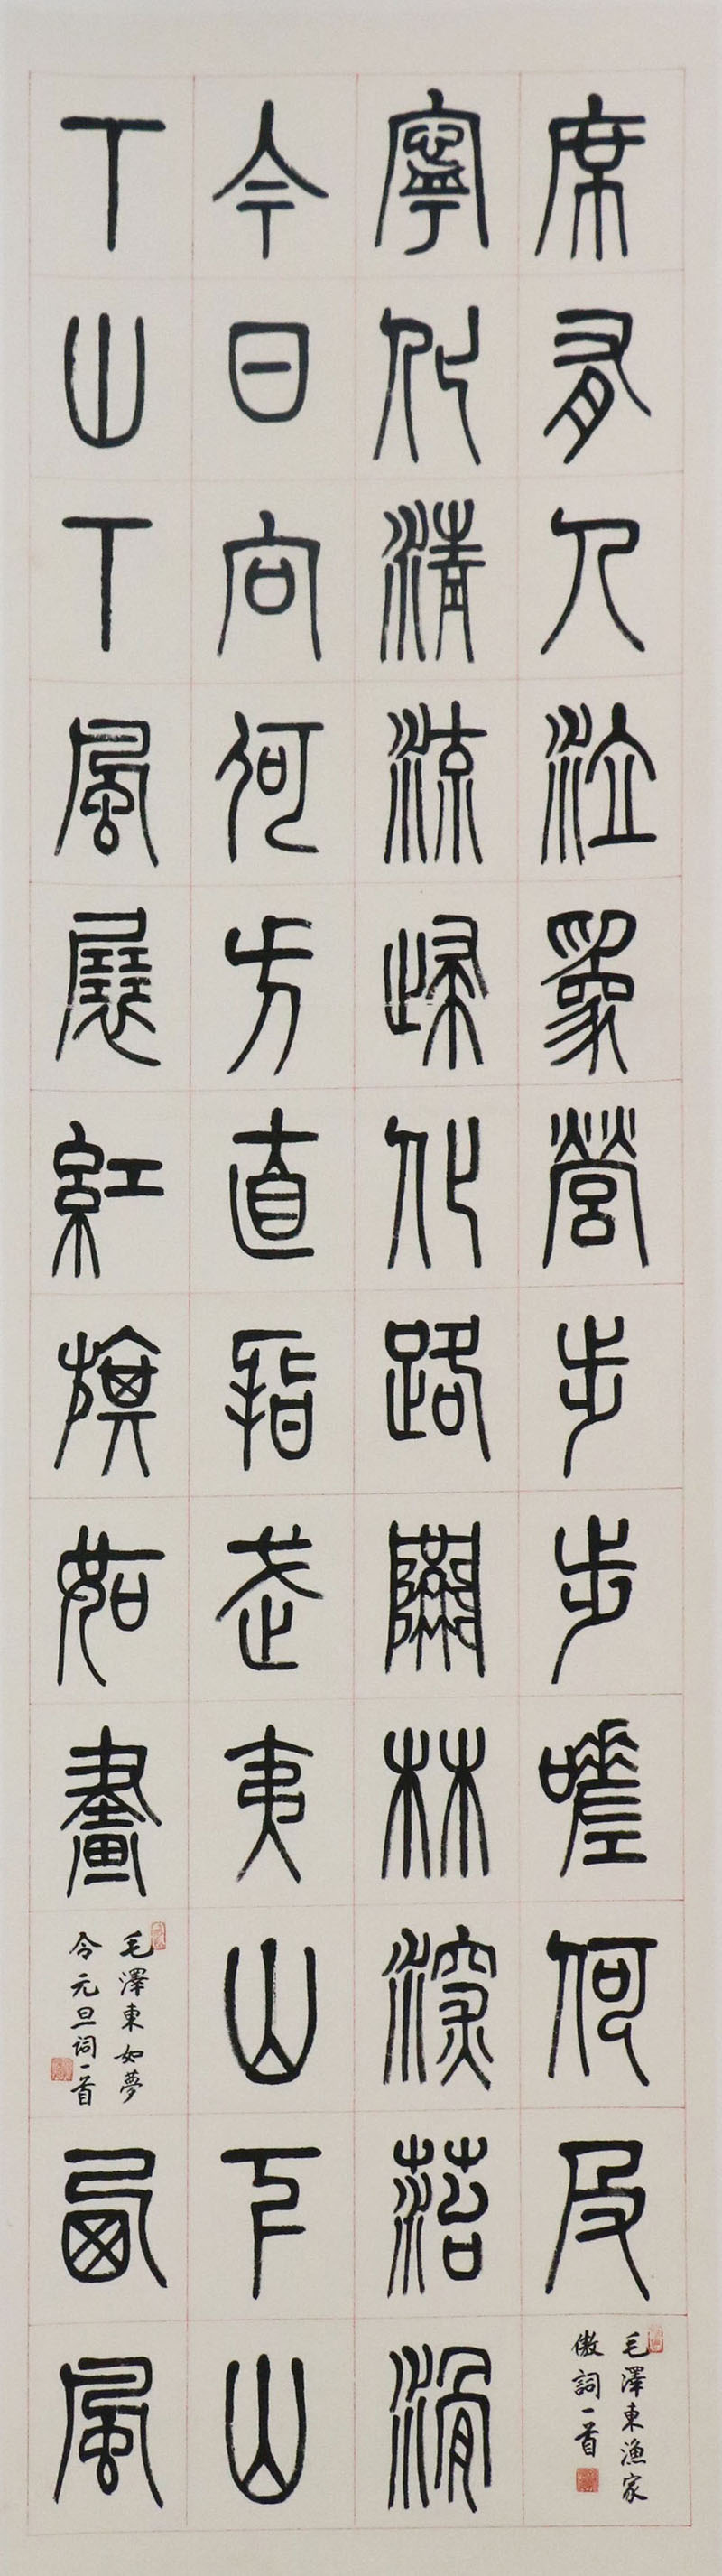 席有人泣為營步步嗟何及
毛澤東漁家
傲詞一首
寧化清流歸化路隘林深苔滑
今日向何方直指武夷山下山
下山下風展紅旗如畫
毛澤東如夢
令元旦詞一首
西風